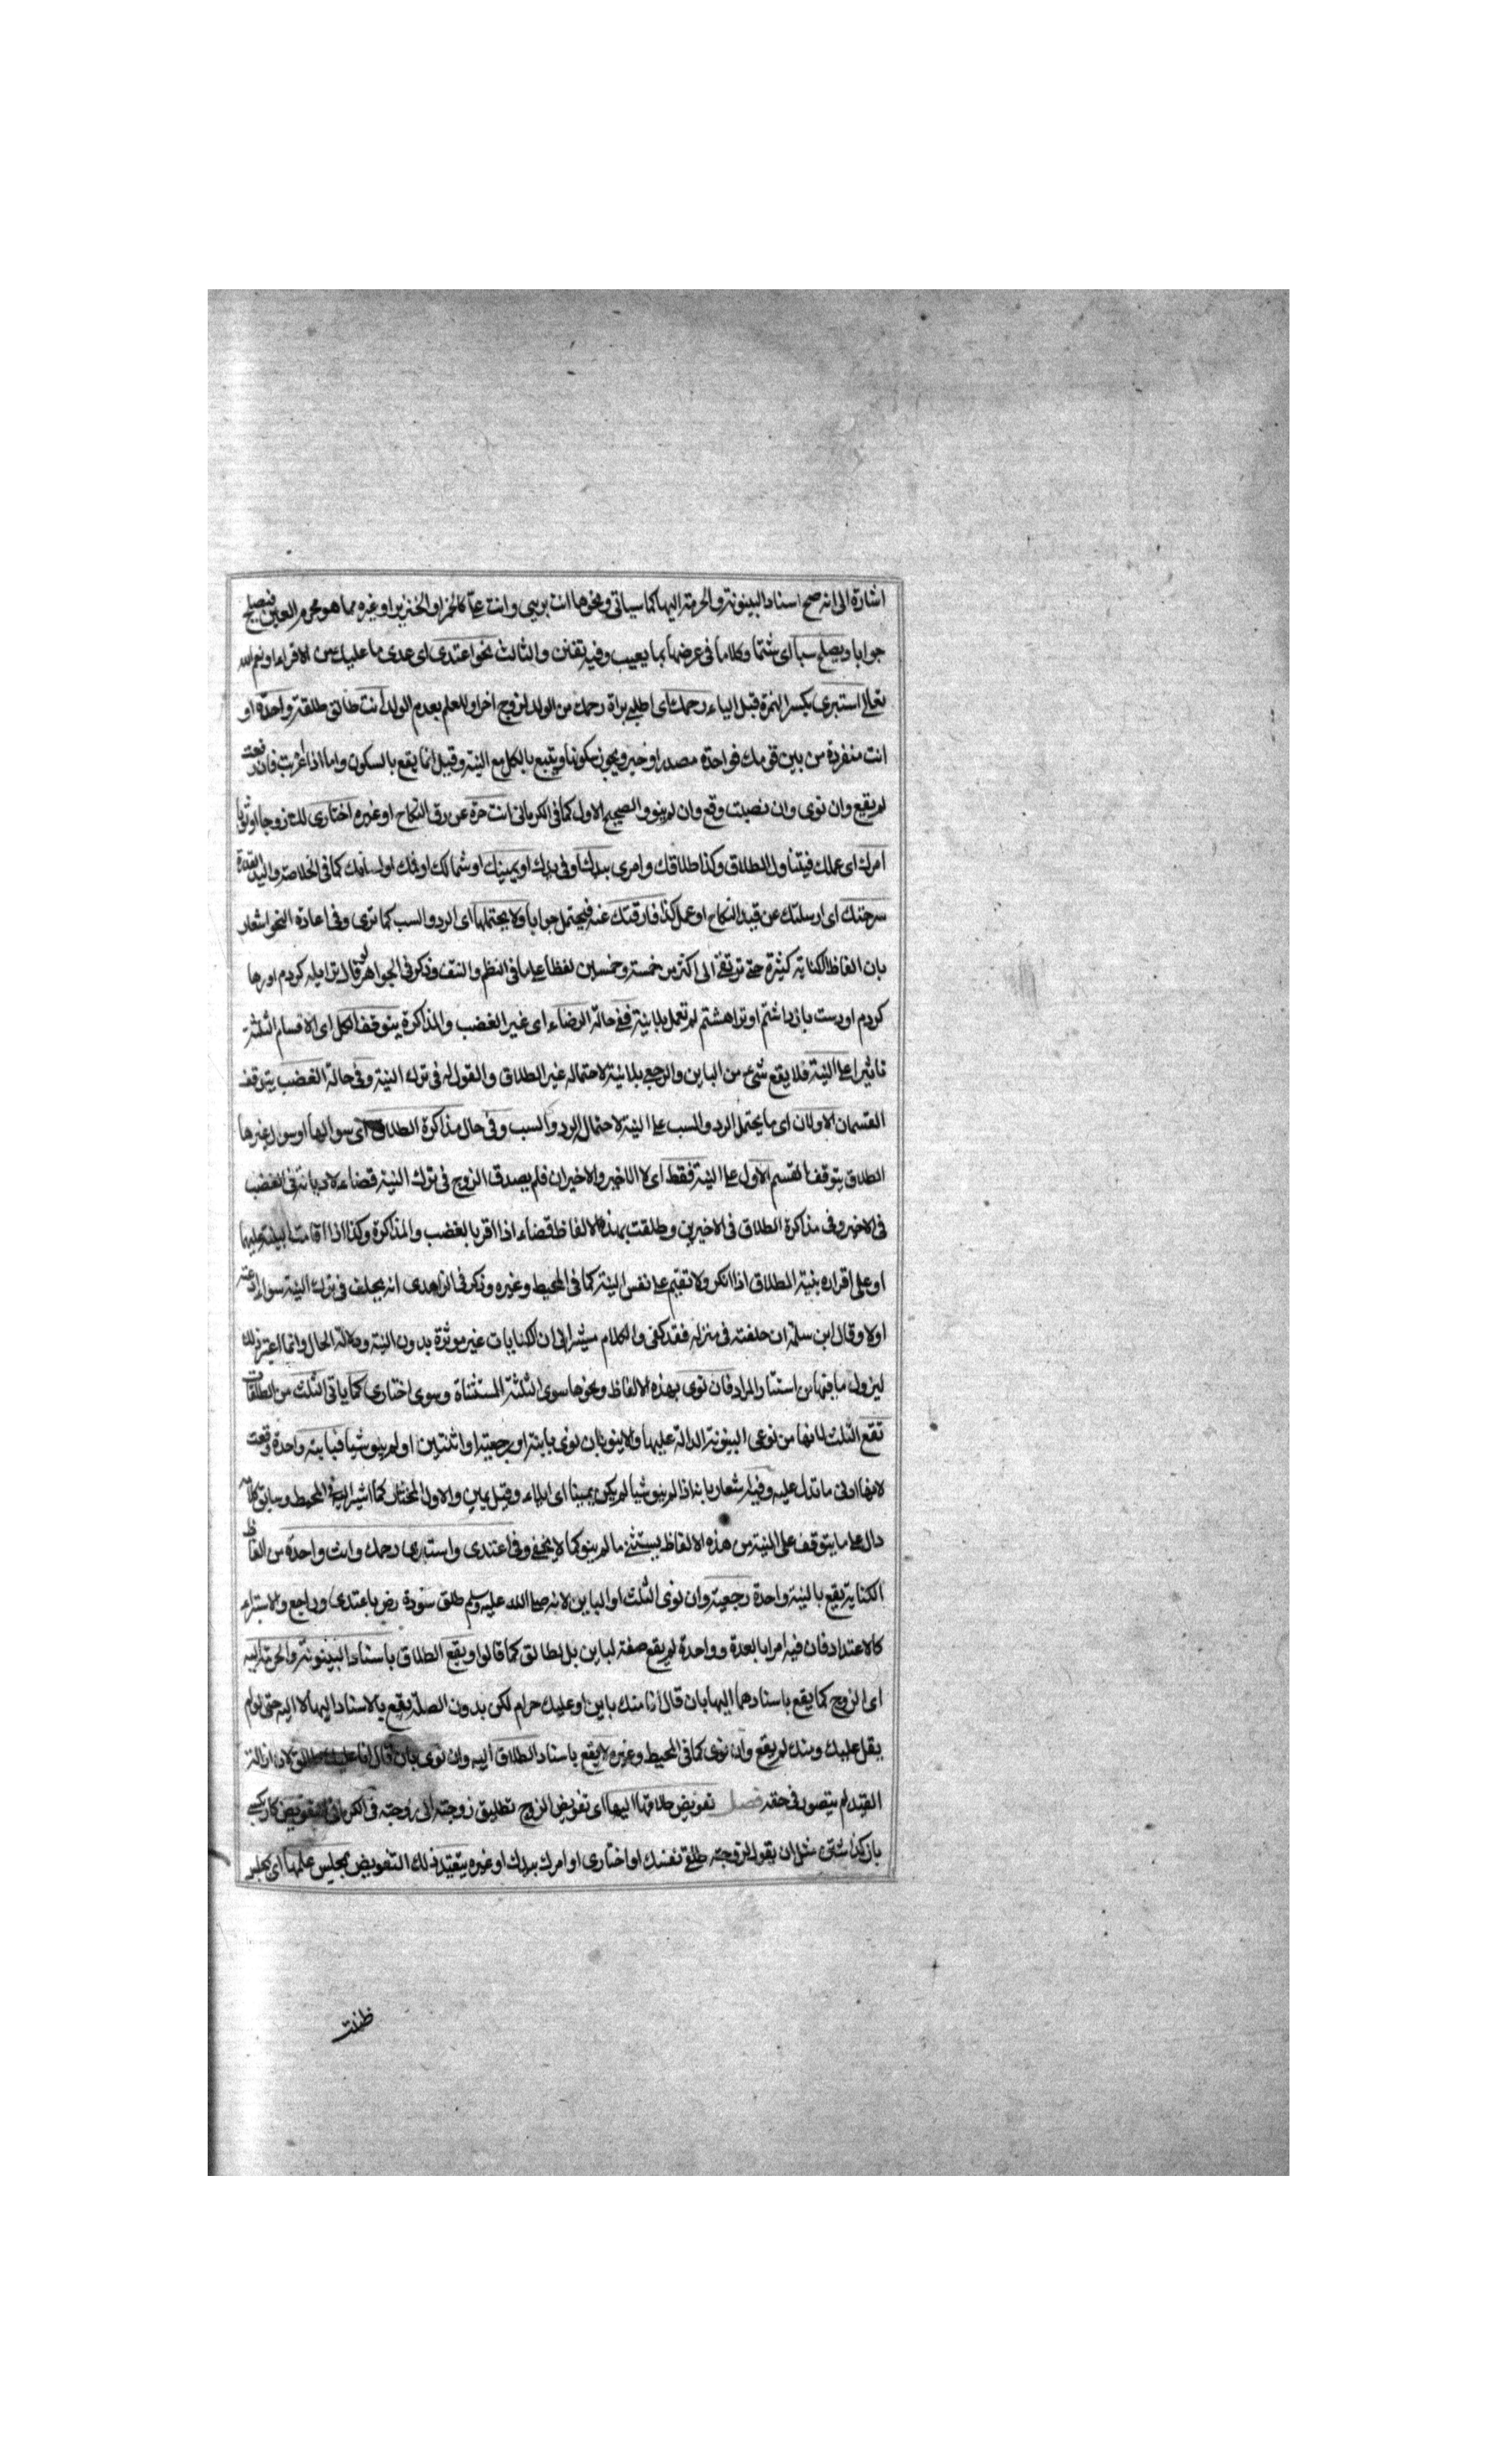 اشارة الى انه صح اسناد البينونة والحرمة اليها كما سياتى ونحوها انت بريى وانت على كالخمر او الخنزير او غيره مما هو محرم العين فيصلح
جوابا ويصلح سبا اى شتما وكلاما فى عرضها بما يعيب وفيه تفنن والثالث نحو اعتدى اى عدى ما عليك من الاقراء او نعم الله
تعالى استبرى بكسر الهمزة قبل الياء رحمك اى اطلبى براة رحمك من الولد لزوج اخر او للعلم بعدم الولد انت طالق طلقة واحدة او
انت منفردة من بين قومك فواحدة مصدر او خبر ويجوز سكونها ويقع بالكل مع النية وقيل انما يقع بالسكون واما اذا اعربت فان رفعت
لم يقع وان نوى وان نصبت وقع وان لم ينو والصحيح الاول كما فى الكرمانى انت حرة عن رق النكاح او غيره اختارى لك زوجا او ثوبا
امرك اى عملك فيتناول الطلاق وكذا طلاقك وامرى بيدك او فى يدك او يمينك او شمالك او فمك او لسانك كما فى الخلاصة واليد القدرة
سرحتك اى ارسلتك عن قيد النكاح او عمل كذا فارقتك عنه فيحتمل جوابا ولا يحتملها اى الرد والسب كما ترى وفى اعادة النحو اشعار
بان الفاظ الكناية كثيرة حتى ترتقى الى اكثر من خمسة وخمسين لفظا على ما فى النظم والنتف وذكر فى الجواهر لو قال ترا يله كردم او رها
كردم او دست بازداشتم او ترا هشتم لم تعمل بلا نية ففى حالة الرضاء اى غير الغضب والمذاكرة يتوقف الكل اى الاقسام الثلثة
تاثيرا على النية فلا يقع شىء من الباين والرجعى بلا نية لاحتماله غير الطلاق والقول له فى ترك النية وفى حالة الغضب يتوقف
القسمان الاولان اى ما يحتمل الرد والسب على النية لاحتمال الرد والسب وفى حال مذاكرة الطلاق اى سوالها او سوال غيرها
الطلاق يتوقف القسم الاول على النية فقط اى لا الاخير والاخيران فلم يصدق الزوج فى ترك النية قضاء لا ديانة فى الغضب
فى الاخير وفى مذاكرة الطلاق فى الاخيرين وطلقت بهذه الالفاظ قضاء اذا اقر بالغضب والمذاكرة وكذا اذا اقامت البينة عليهما
او على اقراره بنية الطلاق اذا انكر ولا تقيم على نفس النية كما فى المحيط وغيره وذكر فى الزاهدى انه يحلف فى ترك النية سواء ادعته
اولا وقال ابن سلمة ان حلفته فى منزله فقد كفى والكلام مشير الى ان الكنايات غير موثرة بدون النية ودلالة الحال وانما اعتبر ذلك
ليزول ما فيها من استتار المراد فان نوى بهذه الالفاظ ونحوها سوى الثلثة المستثناة وسوى اختارى كما ياتى الثلث من الطلقات
تقع الثلث لانها من نوعى البينونة الدالة عليها والا ينو بان نوى باينة او رجعية او اثنتين او لم ينو شيا فباينة واحدة وقعت
لانها ادنى ما تدل عليه وفيه اشعار بانه اذا لم ينو شيا لم يكن يمينا اى ايلاء وقيل يمين والاول المختار كما اشير اليه فى المحيط وسابق كلامه
دال على ما يتوقف على النية من هذه الالفاظ يستثنى ما لم ينو كما لا يخفى وفى اعتدى واستبرى رحمك وانت واحدة من الفاظ
الكناية يقع بالنية واحدة رجعية وان نوى الثلث او الباين لانه صلى الله عليه وسلم طلق سودة رض باعتدى وراجع والاستبراء
كالاعتداد فان فيه امرا بالعدة وواحدة لم يقع صفة لباين بل لطالق كما قالوا ويقع الطلاق باسناد البينونة والحرمة اليه
اى الزوج كما يقع باسنادهما اليها بان قال انا منك باين او عليك حرام لكن بدون الصلة يقع بالاسناد اليها لا اليه حتى لو لم
يقل عليك ومنك لم يقع وان نوى كما فى المحيط وغيره لا يقع باسناد الطلاق اليه وان نوى بان قال انا عليك طالق لان ازالة
القيد لم يتصور فى حقه فصل تفويض طلاقها اليها اى تفويض الزوج تطليق زوجته الى زوجته فى الكرمانى التفويض كار بكسى
بازگذاشتن مثل ان يقول لزوجته طلقى نفسك او اختارى او امرك بيدك او غيره يتقيد ذلك التفويض بمجلس علمها اى بمجلس